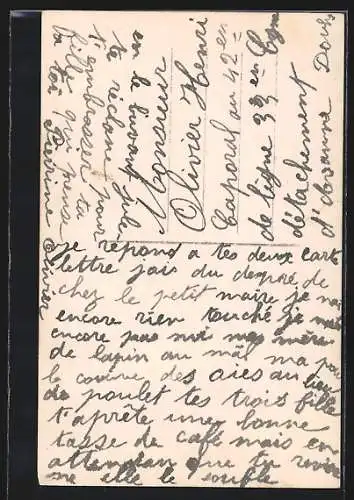 Monsieur
Olivier Henri
Caporal au 42 en
de ligne 33 en Cgni
détachement
d'Avoanne Doubs
je répond a tes deux carte
lettre jais du despoé de
chez le petit maire je nai
encore rien touché je
encore pas mis mes mère
de lapin au mâl ma
le couvine des aies au lieu
de poulet tes trois fille
t'aprête une bonne
tasse de café mais en
attendan que tu revien
ne elle le soufle
en le buvant
te réclame pour
t'embrasser ta
fille qui pense
a toi
Pierrine Olivier